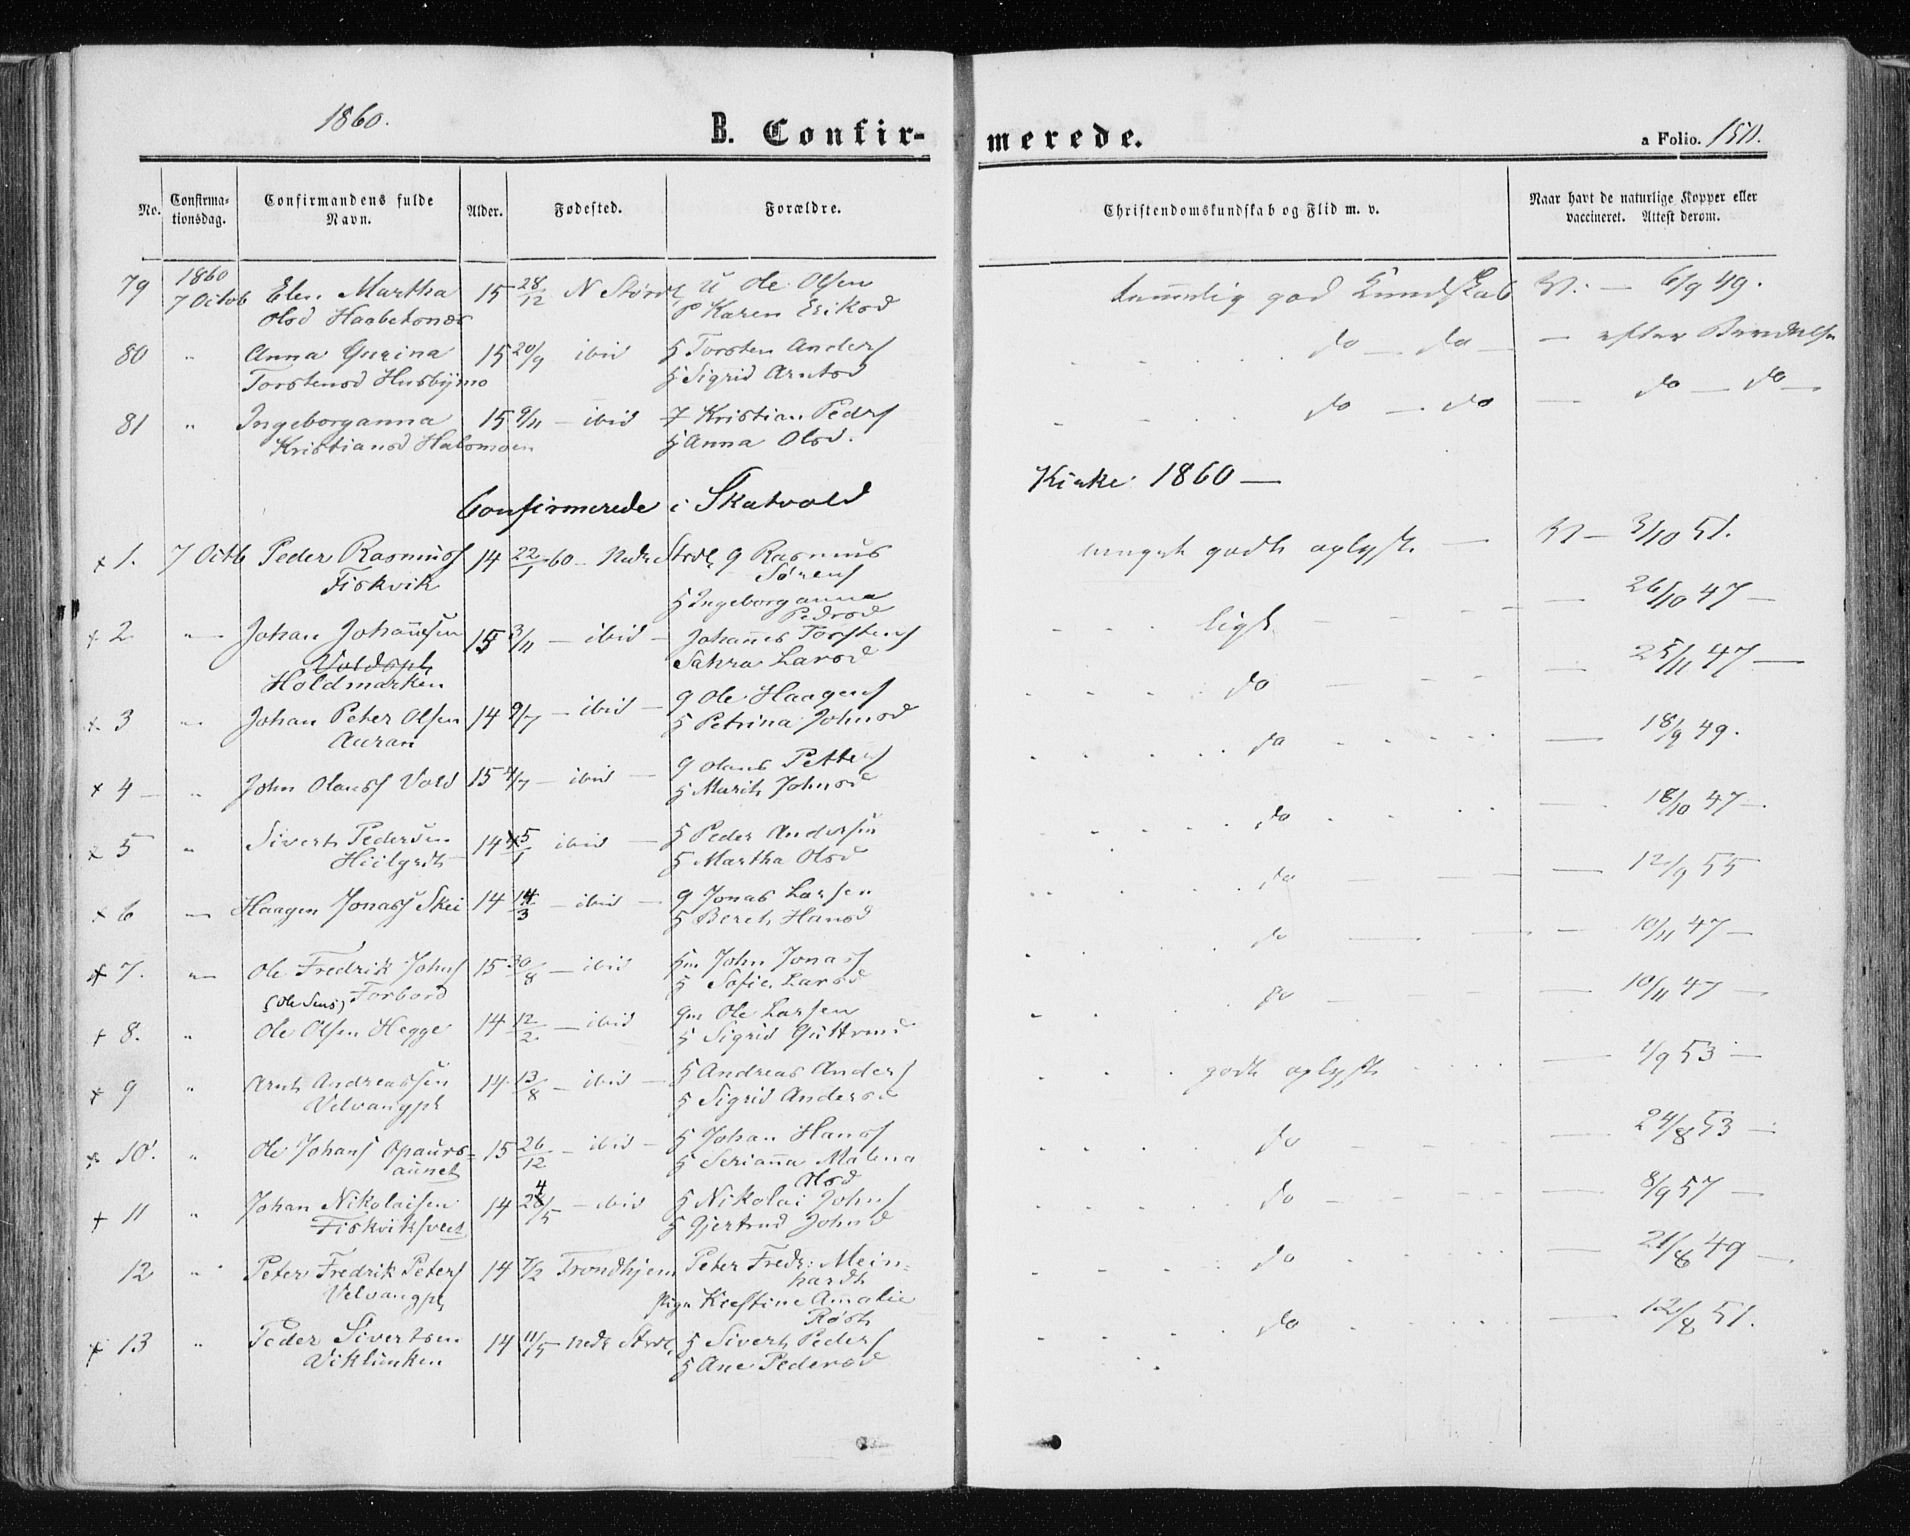 1860.
B. Confirmerede.
a Folio. 150.
No.
Confirmationsdag.
Confirmandens fulde Navn.
Alder.
Fødested.
Forældre.
Christendomskundskab og Flid m. v.
Naar havt de naturlige Kopper eller vaccineret. Attest derom.
79 1860 7 Octob Elen Martha 15 28/12 N Stördl U Ole Olsen temmelig god Kundskab V. — 6/9 49.
Olsd Haabetsnæs Karen Eriksd
80 " Anna Gurina 15 20/9 ibid Torsten Anders do — do — efter
Torstensd Husbymo Sigrid Arntsd
81 " Ingeborganna 15 9/11 — ibid Kristian Peders do — do — do — do —
Kristiansd Halsmoen Anna Olsd.
Confirmerede i Skatvold Kirke 1860 —
1. 7 Octb Peder Rasmuss 14 22/1 60 Nedr Strdl g Rasmus Sørens meget godt oplyst — V — 3/10 51.
Fiskvik Ingeborganna Pedrsd
2 " Johan Johannesen 15 3/11 — ibid — Johannes Torstens lige — 26/10 47 —
Holdmarken Sahra Larsd
3 " Johan Peter Olsen 14 9/7 — ibid — g Ole Haagens do — 25/11 47 —
Auran Petrina Johnsd
4 — " John Olauss Vold 15 4/7 — ibid — g Olaus Petters do — 18/9 49.
Marit Johnsd
5 " Sivert Pedersen 14 5/1 ibid — Peder Andersen do — 18/10 47 —
Martha Olsd
6 — Haagen Jonass Skei 14 14/3 — ibid — g Jonas Larsen do — 12/9 55
Beret Hansd
7. " Ole Fredrik Johns 15 30/8 — ibid John Jonass do — 10/11 47 —
Forbord Sofie Larsd
8. " Ole Olsen Hegge 14 12/2 — ibid gm Ole Larsen do — 10/11 47 —
Sigrid
9 " Arnt Andreassen 14 13/8 — ibid — Andreas Anders godt oplyst — 1/9 53 —
Velvangpl Sigrid Andersd
10. " Ole Johans Opaurs- 15 26/12 — ibid — Johan Hans do — 24/8 53 —
aunet Serianna Malena Olsd
11 " Johan Nikolaisen 14 24/5 — ibid Nikolai Johns do — 8/9 57 —
Fiskviksveet Gjertrud Johnsd
12 " Peter Fredrik Peters 14 7/2 Trondhjem Peter Fredr: Mein- do — 21/8 49 —
Velvangpl hardt
pige Kristine Amalie Røst
13 " Peder Sivertsen 14 11/5 Nedr Strdl Sivert Peders do — 12/8 51.
Viklunken Ane Pedersd